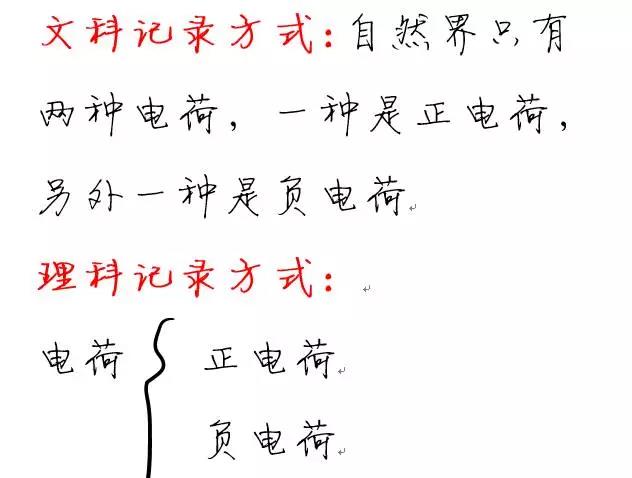 文科记录方式:自然界只有
两种电荷，一种是正电荷，
另外一种是负电荷
理科记录方式:
电荷 正电荷
负电荷